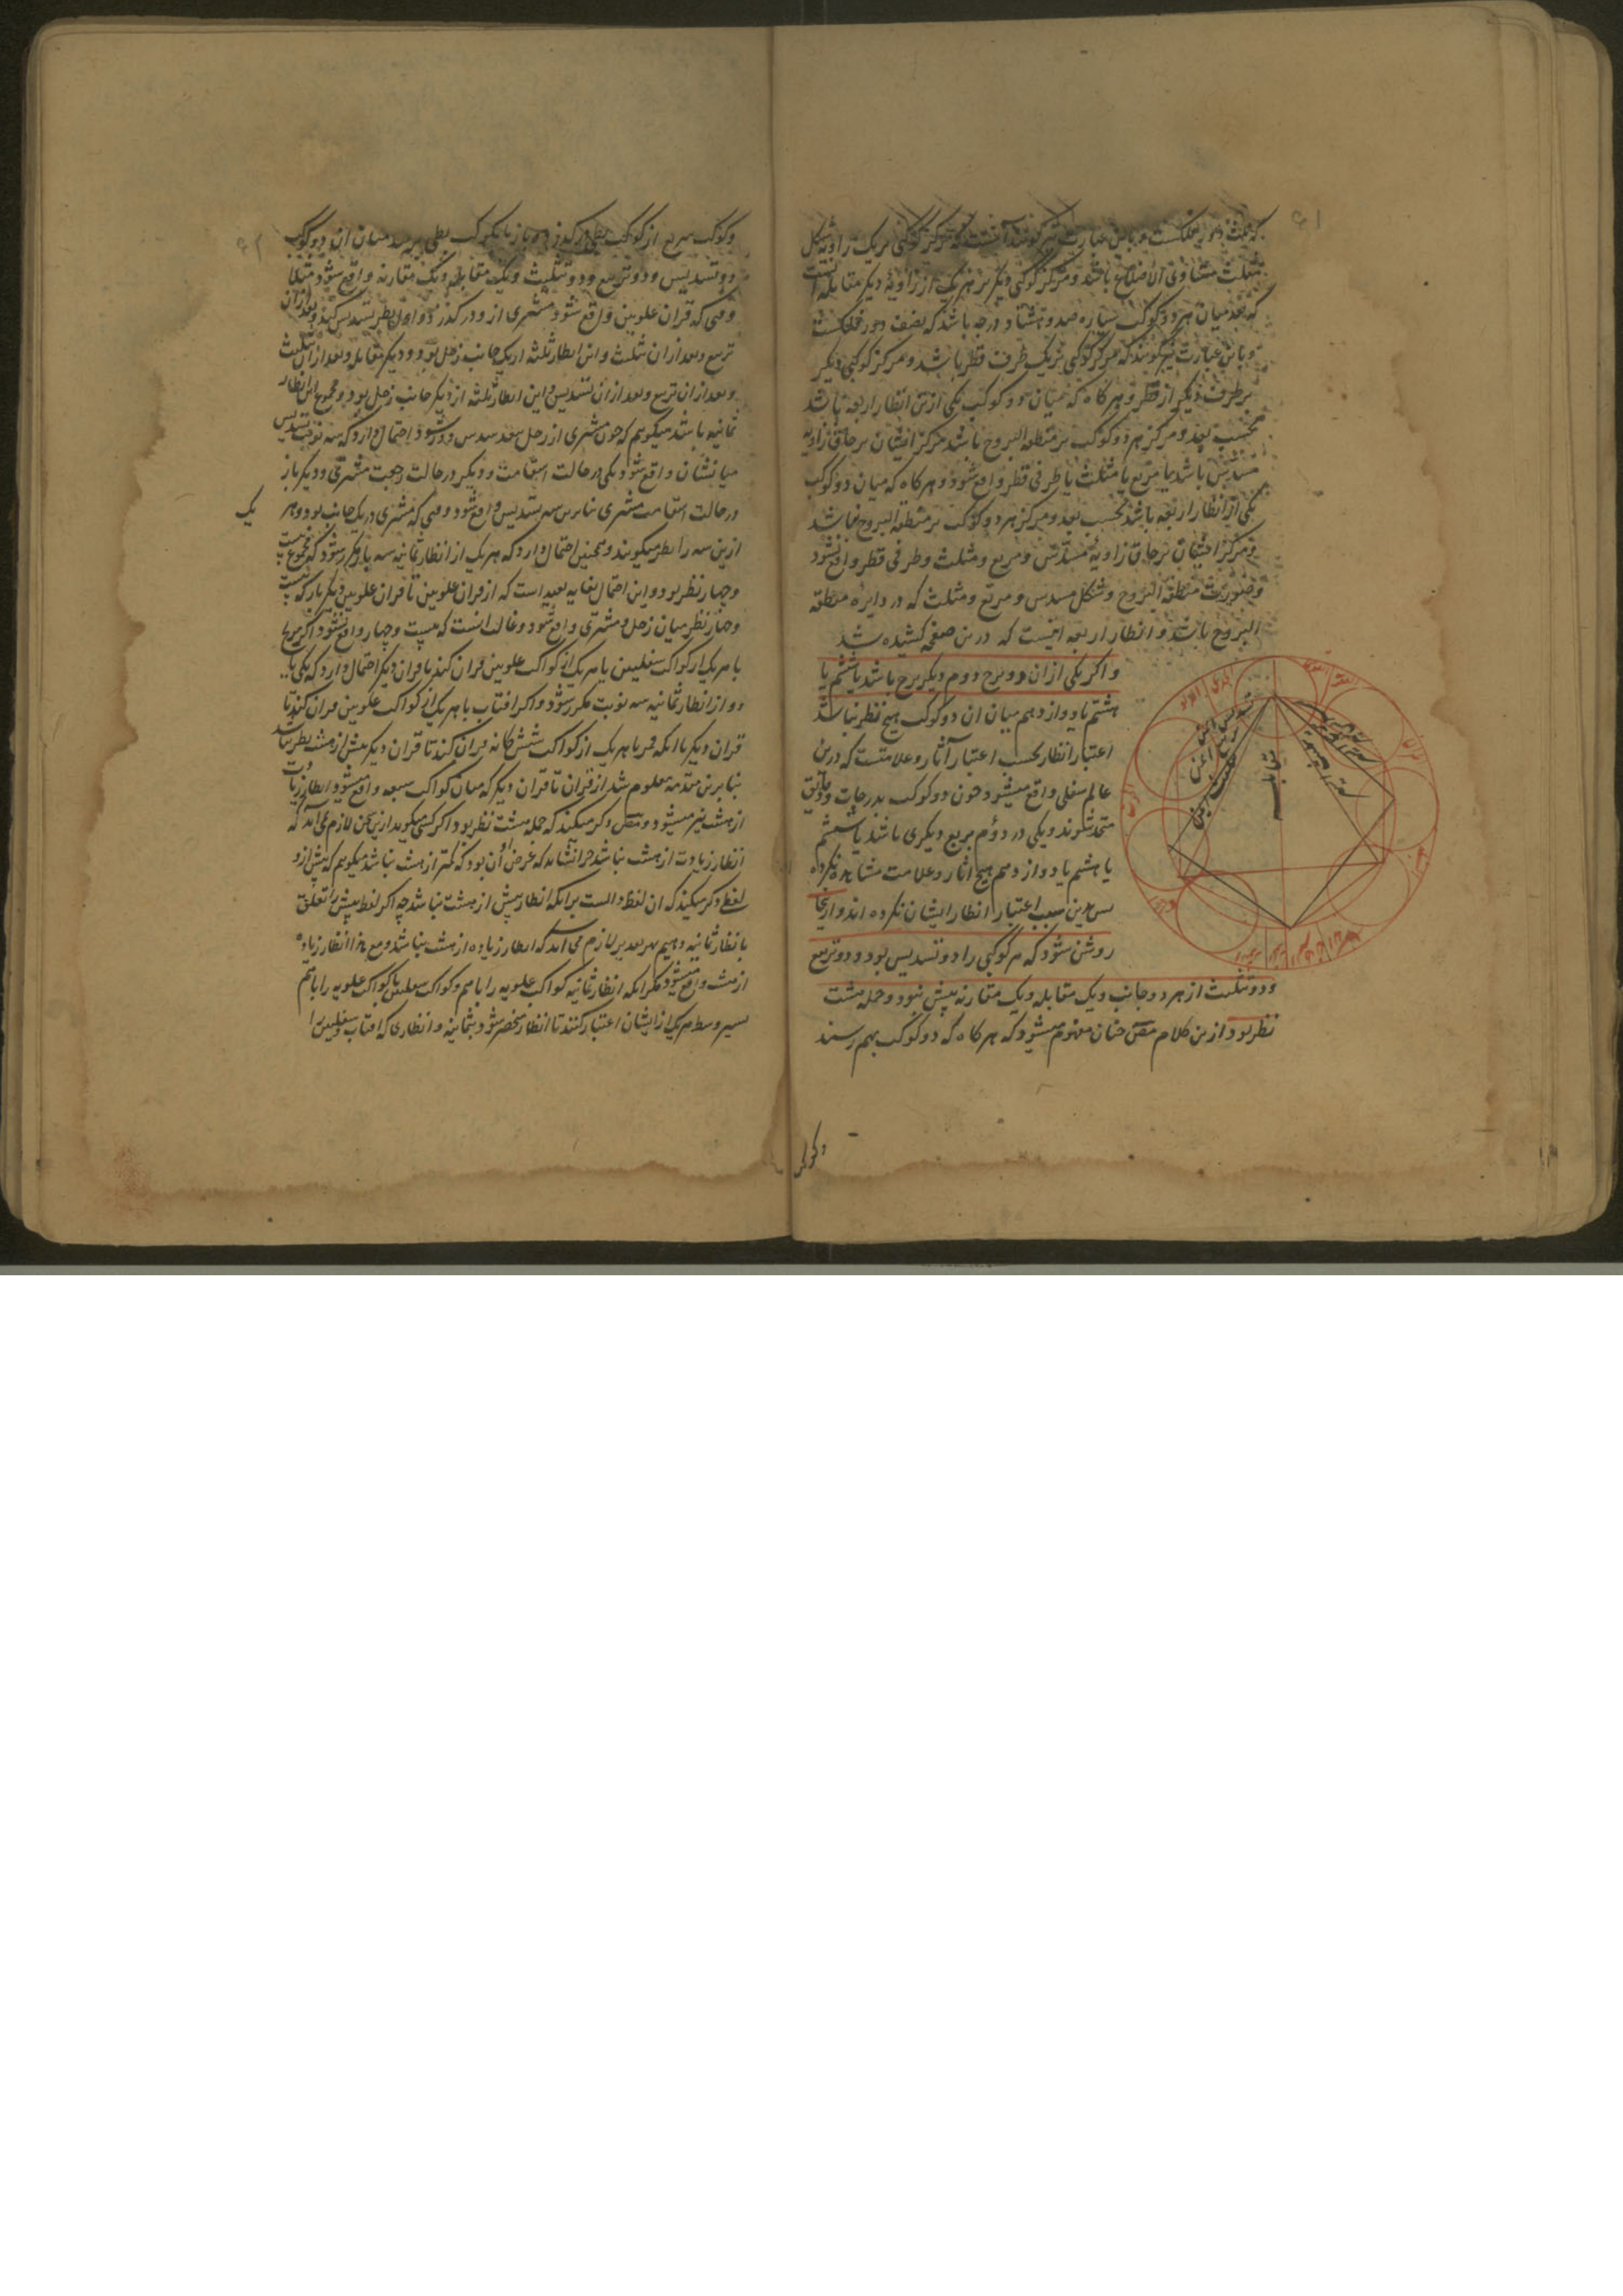 که ثلث دور فلکست و باین عبارت نیز گویند آنست که مرکز کوکبی بریک زاویه شکل
مثلث متساوی الاضلاع باشد و مرکز کوکبی دیگر بر هر یک از زاویه دیگر مقابله آنست
که بعد میان هر دو کوکب سیاره صد و هشتاد درجه باشد که نصف دور فلکست
و باین عبارت نیز گویند که مرکز کوکبی بریک طرف قطر باشد و مرکز کوکبی دیگر
بر طرف دیگر از قطر و هرگاه که میان دو کوکب یکی ازین انظار اربعه باشد
بحسب بعد و مرکز هر دو کوکب بر منطقه البروج باشد مرکز ایشان بر حاق زاویه
مسدس باشد یا مربع یا مثلث یا طرفی قطر واقع شود و هرگاه که میان دو کوکب
یکی از انظار اربعه باشد بحسب بعد و مرکز هر دو کوکب بر منطقه البروج نباشد
و مرکز ایشان بر حاق زاویه مسدس و مربع و مثلث و طرفی قطر واقع نشود
و صورت منطقه البروج و شکل مسدس و مربع و مثلث که در دایره منطقه
البروج باشد و انظار اربعه اینست که درین صفحه کشیده شد
و اگر یکی ازان دو برج دوم دیگر برج باشد یا ششم یا
هشتم یا دوازدهم میان ان دو کوکب هیچ نظر نباشد
اعتبار انظار بحسب اعتبار آثار و علامتست که درین
عالم سفلی واقع میشود و چون دو کوکب بدرجات و دقایق
متحد شوند و یکی در دوم برج دیگری باشد یا ششم
یا هشتم یا دوازدهم هیچ آثار و علامت مشاهده نکرده
پس بدین سبب اعتبار انظار ایشان نکرده اند و ازینجا
روشن شود که هر کوکبی را دو تسدیس بود و دو تربیع
و دو تثلیث از هر دو جانب و یک مقابله و یک مقارنه بیش نبود و جمله هشت
نظر بود و ازین کلام مص چنان مفهوم میشود که هرگاه که دو کوکب بهم رسند
و کوکب
مقابله
و کوکب سریع از کوکب بطی درگذرد و باز بانکوکب بطی برسد میان ان دو کوکب
دو تسدیس و دو تربیع و دو تثلیث و یک مقابله و یک مقارنه واقع شود مثلا
وقتی که قران علویین واقع شود مشتری ازو درگذرد و اول نظر تسدیس کند و بعد ازان
تربیع و بعد ازان تثلیث و این انظار ثلثه از یک جانب زحل بود و دیگر مقابله و بعد ازان تثلیث
و بعد ازان تربیع و بعد ازان تسدیس و این انظار ثلثه از دیگر جانب زحل بود و مجموع این انظار
ثمانیه باشد میگویم که چون مشتری از زحل ببعد سدس دور شود احتمال دارد که سه نوبت تسدیس
میانشان واقع شود یکی در حالت استقامت و دیگر در حالت رجعت مشتری و دیگر باز
در حالت استقامت مشتری بنابرین سه تسدیس واقع شود وقتی که مشتری در یک جانب بود و هر
یک
ازین سه را نظر میگویند و همچنین احتمال دارد که هر یک از انظار ثمانیه سه بار مکرر شود که مجموع بیست
و چهار نظر بود و این احتمال بغایه بعید است که از قران علویین تا قران علویین دیگر بار که بیست
و چهار نظر میان زحل و مشتری واقع شود و غالب انست که بیست و چهار واقع نشود اگر مریخ
با هر یک از کواکب سفلیین با هر یک از کواکب علویین قران کند تا قران دیگر احتمال دارد که یکی یا
دو از انظار ثمانیه سه نوبت مکرر شود و اگر افتاب با هر یک از کواکب علویین قران کند تا
قران دیگر یا انکه قمر با هر یک از کواکب ششگانه قران کند تا قران دیگر بیش از هشت نظر نباشد
بنابرین مقدمه معلوم شد از قران تا قران دیگر که میان کواکب سبعه واقع میشود انظار زیادت
از هشت نیز میشود و مص ذکر میکند که جمله هشت نظر بود اگر کسی گوید ازین سخن لازم می آید که
انظار زیادت از هشت نباشد چرا نشاید که غرض او آن بود که کمتر از هشت نباشد میگویم که پیش ازو
لفظی ذکر میکند که ان لفظ دالست برانکه انظار بیش از هشت نباشد چه اگر لفظ بیش را تعلق
بانظار ثمانیه دهیم بهر تقدیر لازم می آید که انظار زیاده از هشت نباشد و مع هذا انظار زیاده
از هشت واقع میشود مگر انکه انظار ثمانیه کواکب علویه را با هم و کواکب سفلیین با کواکب علویه را با هم
بسیر وسط هر یک از ایشان اعتبار کنند تا انظار منحصر شود بثمانیه و انظاری که افتاب و سفلیین را